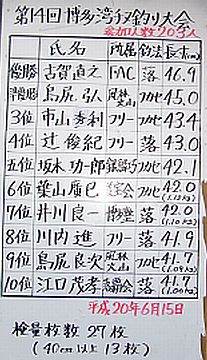 第14回博多湾チヌ釣り大会
参加人数203人
氏名 所属 釣法 長寸(cm)
優勝 古賀直之 FAC 落 46.9
準優勝 島尻弘人 風林火山 フカセ 45.0
3位 市山秀利 フリー フカセ 43.4
4位 辻俊紀 フリー 落 43.0
五位 坂本功一郎 フカセ 42.1
6位 葉山雁巳 フカセ 42.0
7位 井川良一 落 42.0
8位 川内進 フリー 落 41.9
9位 島尻良次 風林火山 フカセ 41.7
10位 江口茂孝 落 41.7
平成20年6月15日
検量枚数 27枚
(40cm以上 13枚)